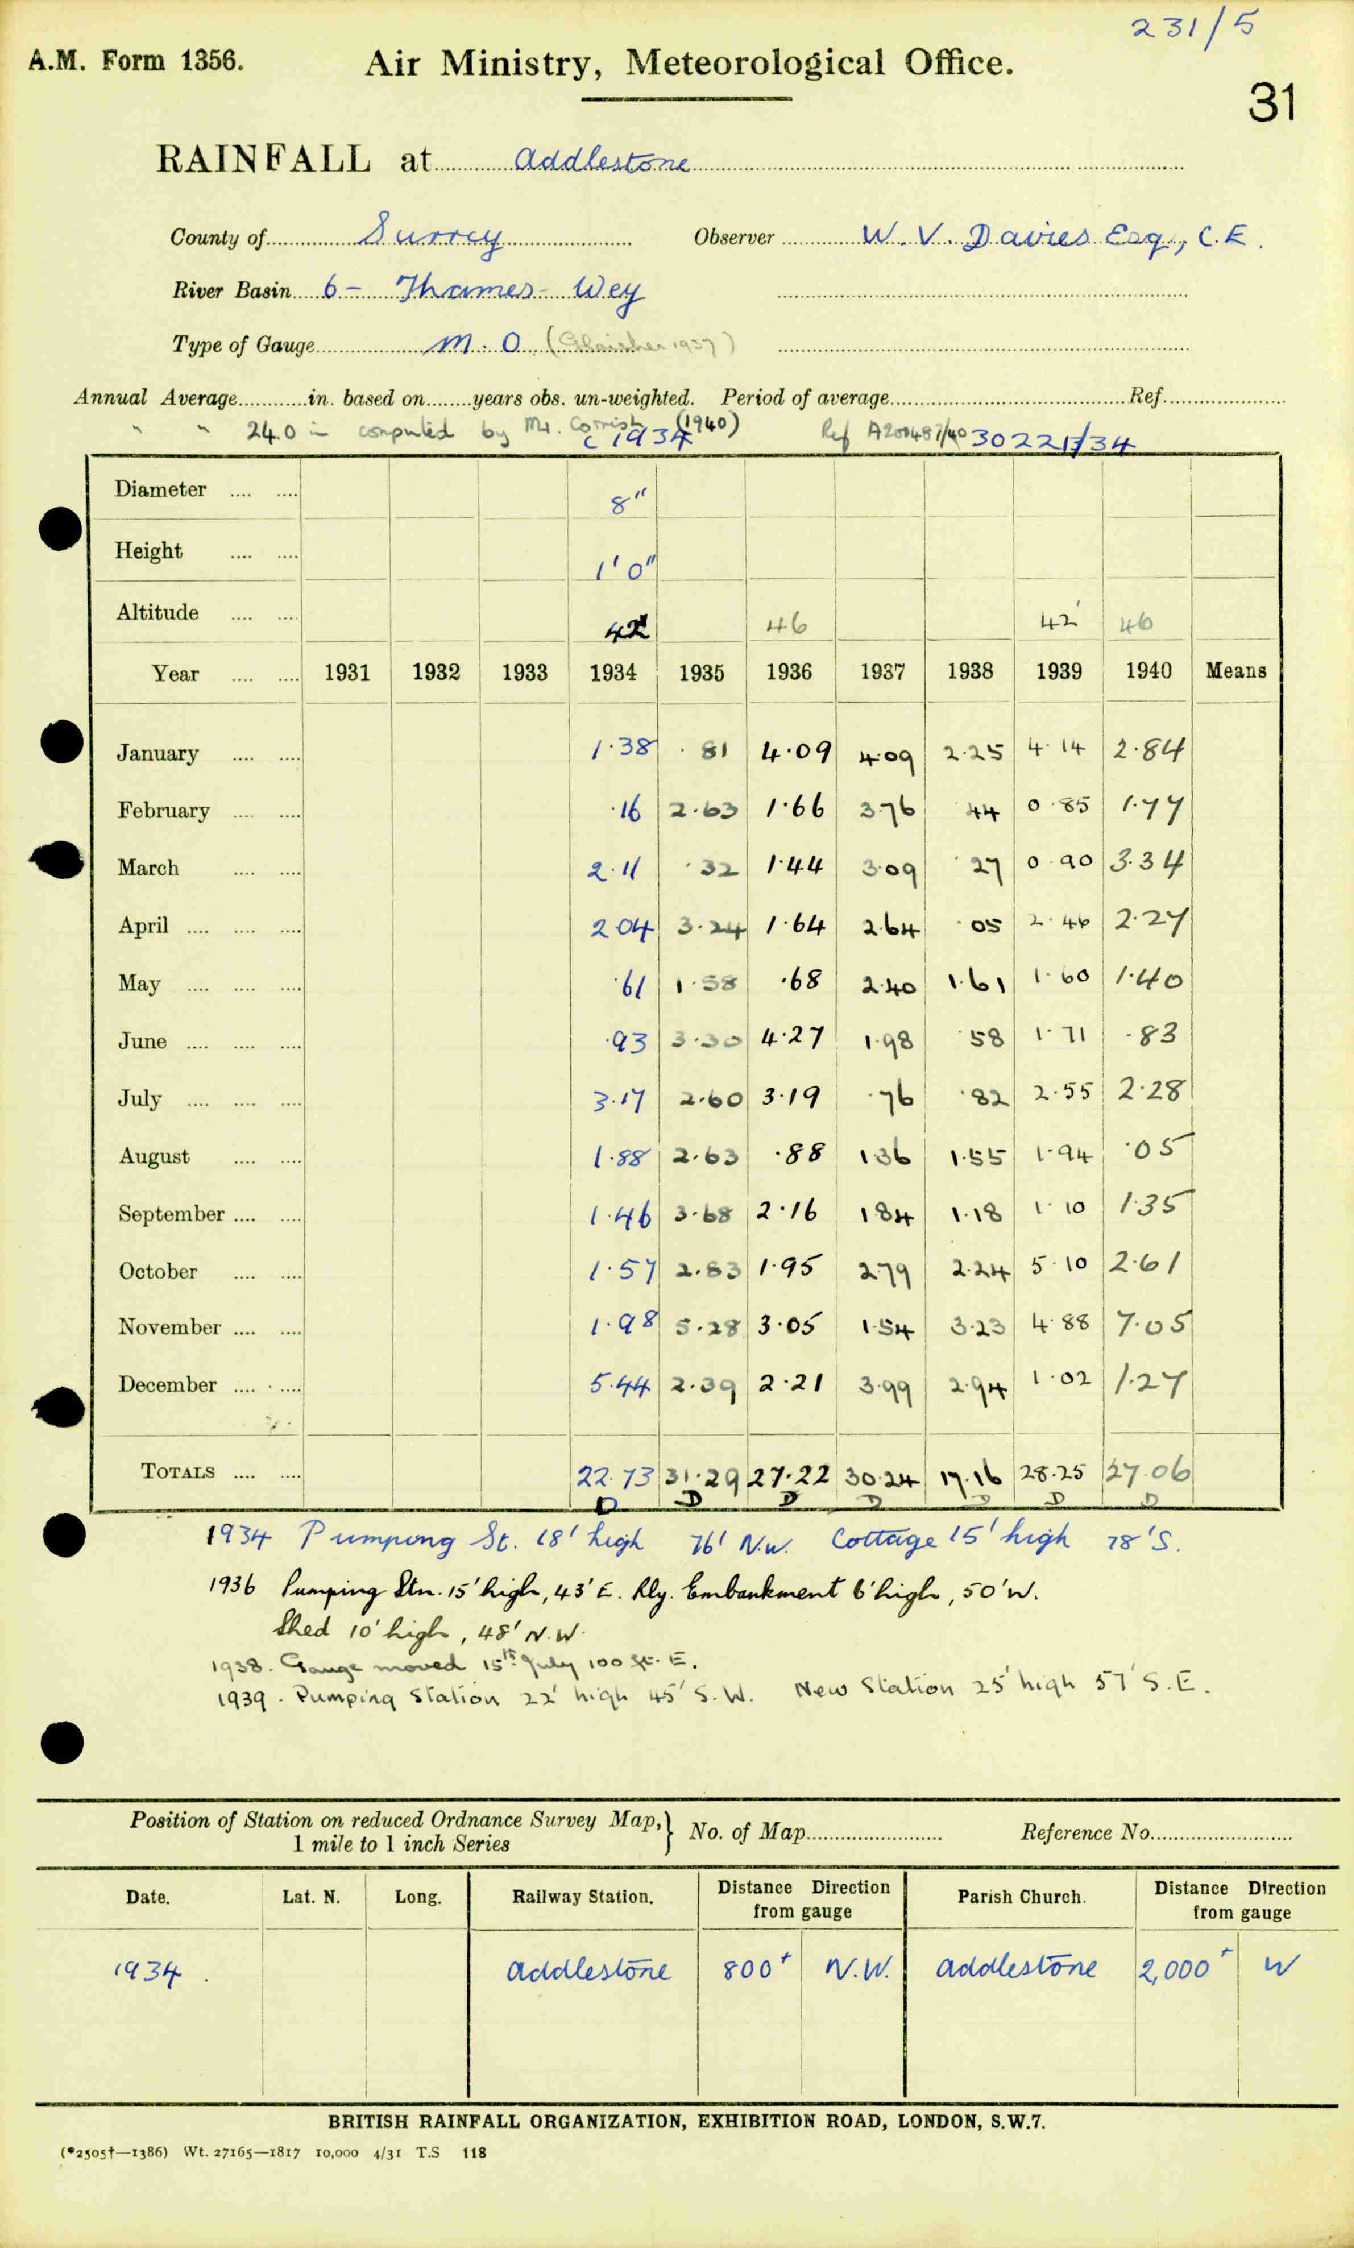 231/5
A.M. Form 1356. Air Ministry, Meteorological Office.
31
RAINFALL at Addlestone
County of Surrey Observer W. V. Davies Esq., C.E.
River Basin 6 - Thames - Wey
Type of Gauge M.O. (Glaisher 1937)
Annual Average in. based on years obs. un-weighted. Period of average Ref.
" " 24.0 in computed by Mr. Cornish (1940) Ref A200487/40
C 1934 302213/34
Diameter 8"
Height 1' 0"
Altitude 42' 46 42' 46
Year 1931 1932 1933 1934 1935 1936 1937 1938 1939 1940 Means
January 1.38 .81 4.09 4.09 2.25 4.14 2.84
February .16 2.63 1.66 3.76 44 0.85 1.77
March 2.11 .32 1.44 3.09 .27 0.90 3.34
April 2.04 3.24 1.64 2.64 .05 2.46 2.27
May .61 1.58 .68 2.40 1.61 1.60 1.40
June .93 3.30 4.27 1.98 .58 1.71 .83
July 3.17 2.60 3.19 .76 .82 2.55 2.28
August 1.88 2.63 .88 1.36 1.55 1.94 .05
September 1.46 3.68 2.16 1.84 1.18 1.10 1.35
October 1.57 2.83 1.95 2.79 2.24 5.10 2.61
November 1.98 5.28 3.05 1.54 3.23 4.88 7.05
December 5.44 2.39 2.21 3.99 2.94 1.02 1.27
TOTALS 22.73 31.29 27.22 30.24 17.16 28.25 27.06
D D D D D D D
1934 Pumping St. 18' high 76' N.W. Cottage 15' high 78' S.
1936 Pumping Stn. 15' high, 43' E. Rly. Embankment 6' high, 50' W.
Shed 10' high, 48' N.W.
1938. Gauge moved 15th July 100 ft. E.
1939. Pumping Station 22' high 45' S.W. New Station 25' high 57' S.E.
Position of Station on reduced Ordnance Survey Map,} No. of Map Reference No.
1 mile to 1 inch Series
Date. Lat. N. Long. Railway Station. Distance Direction from gauge Parish Church. Distance Direction from gauge
1934. Addlestone 800+ N.W. Addlestone 2,000+ W
BRITISH RAINFALL ORGANIZATION, EXHIBITION ROAD, LONDON, S.W.7.
(*2505†—1386) Wt. 27165—1817 10,000 4/31 T.S 118